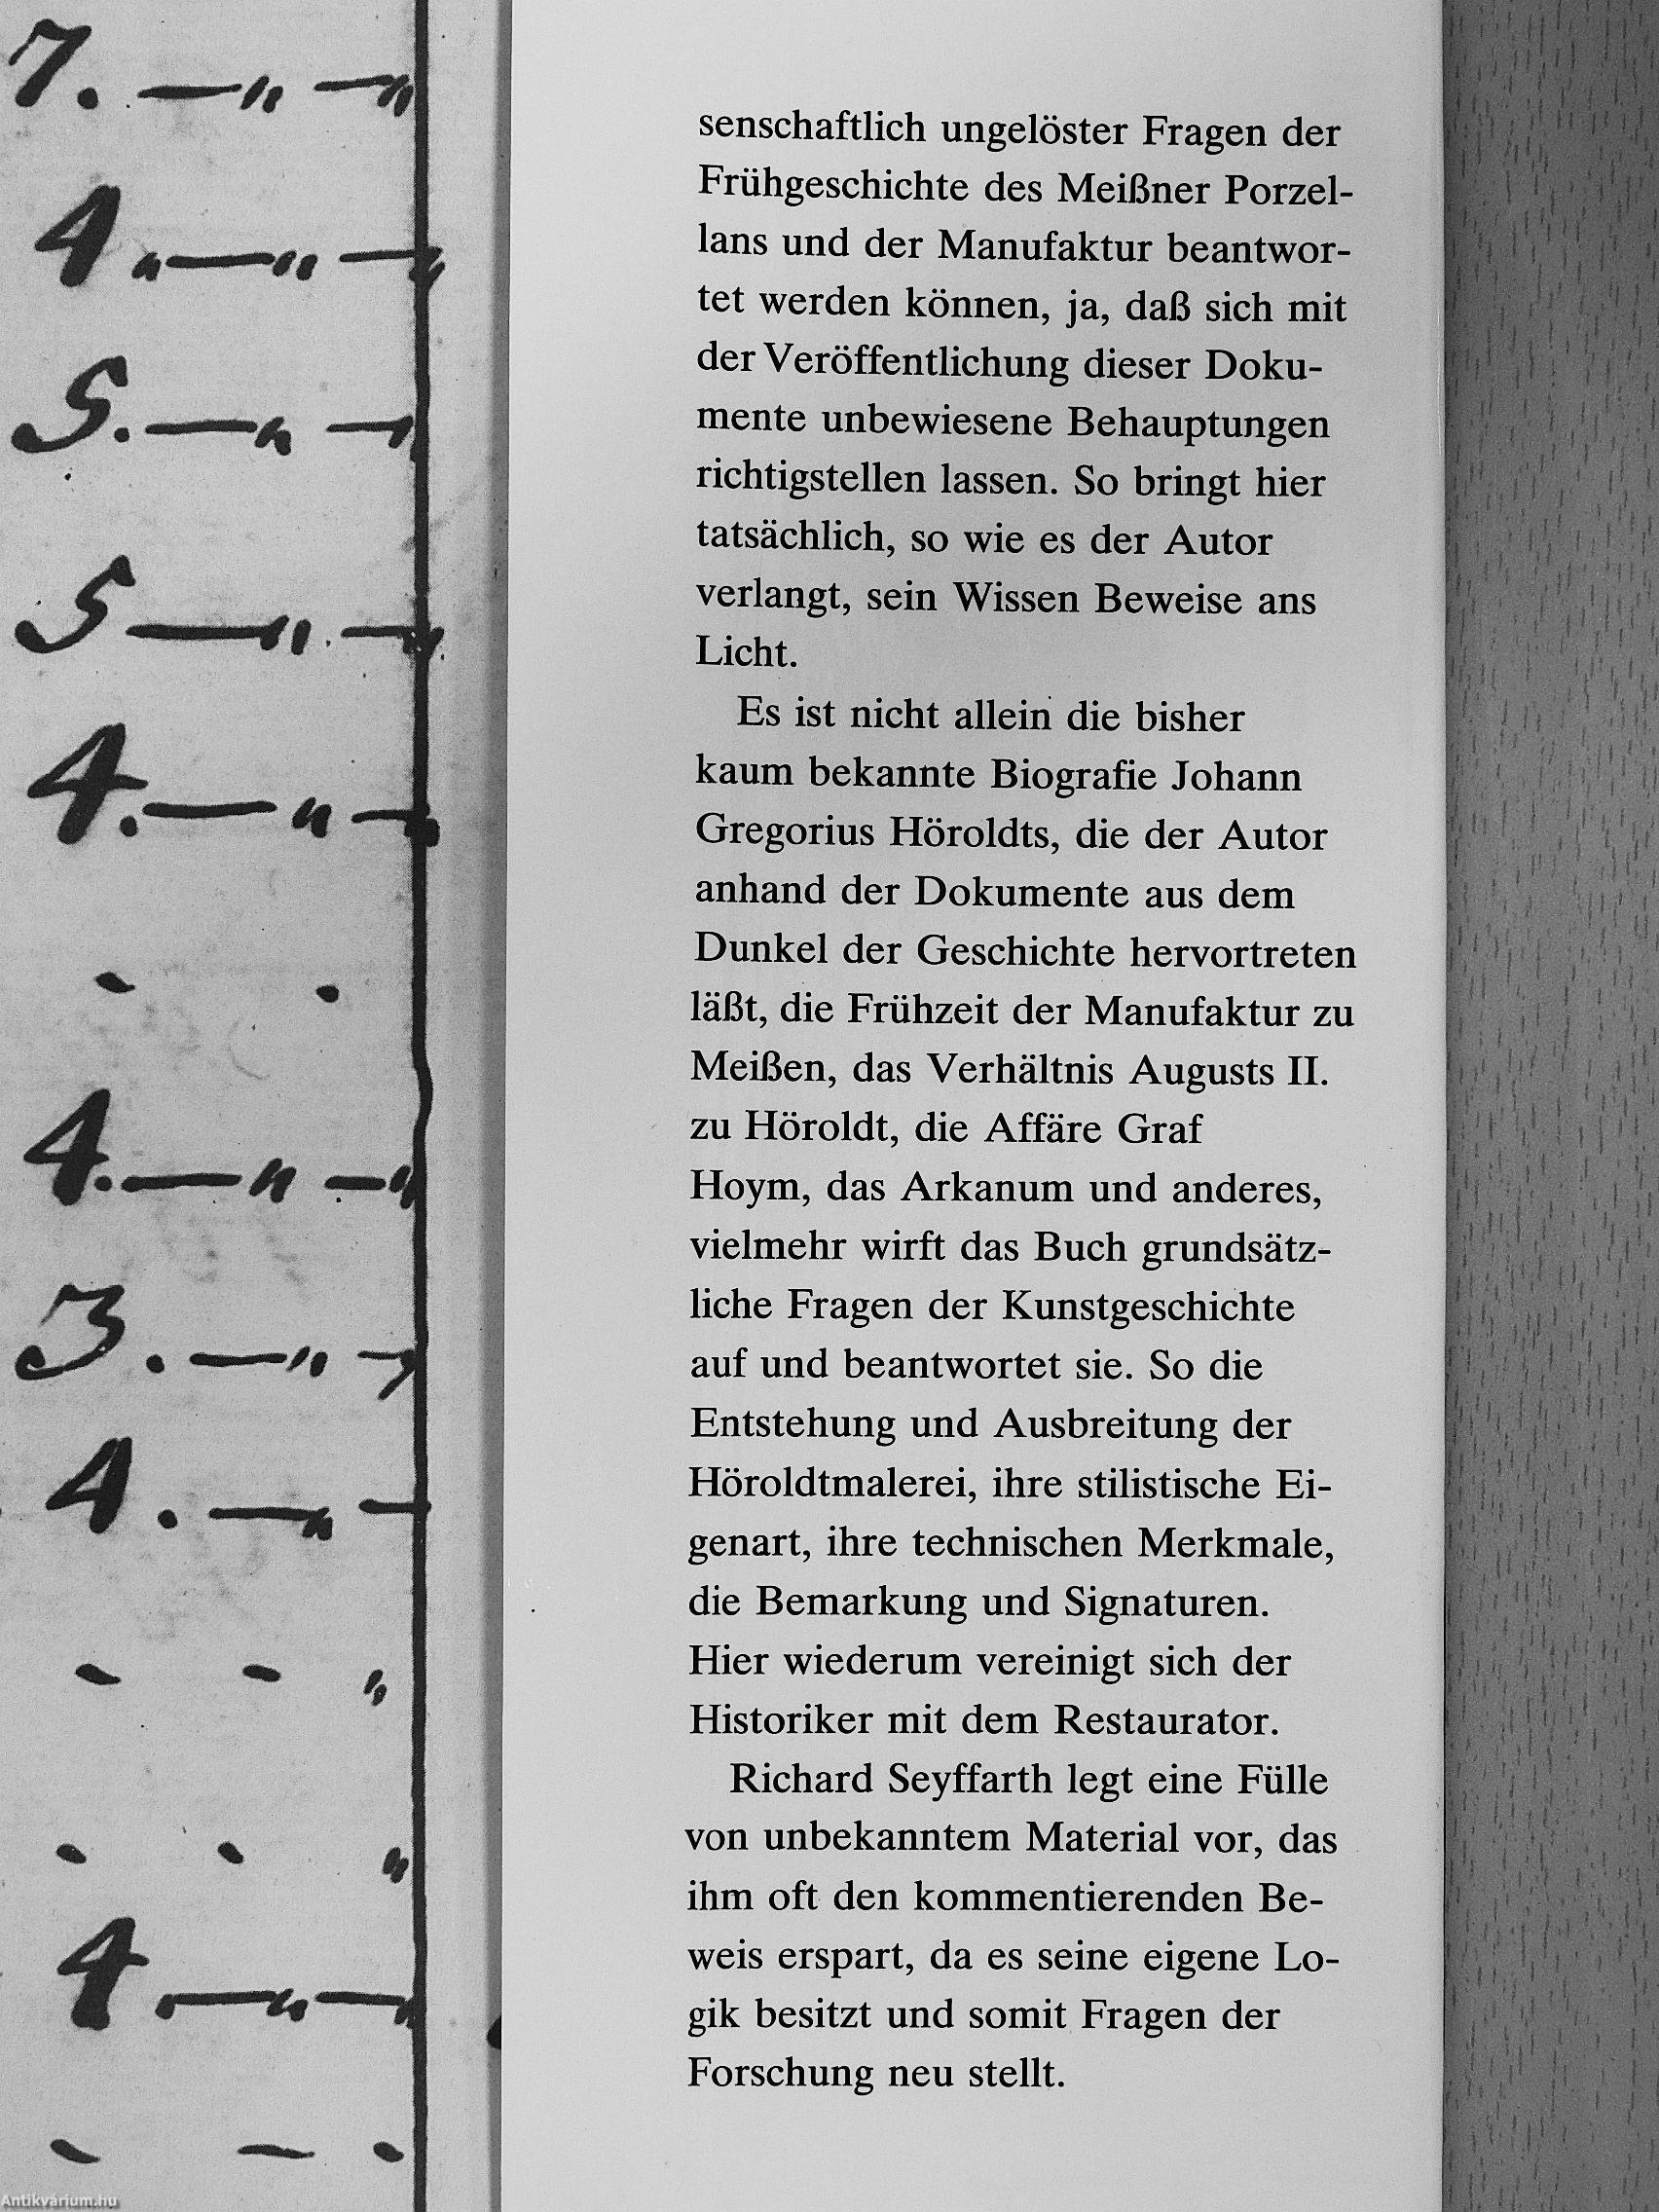 7. — „ — „
4 „ — „ —
5. — „ —
5 — „ —
4. — „ —
4. — „ — „
3. — „ —
4. — „ —
4. — „ — „
senschaftlich ungelöster Fragen der
Frühgeschichte des Meißner Porzel-
lans und der Manufaktur beantwor-
tet werden können, ja, daß sich mit
der Veröffentlichung dieser Doku-
mente unbewiesene Behauptungen
richtigstellen lassen. So bringt hier
tatsächlich, so wie es der Autor
verlangt, sein Wissen Beweise ans
Licht.
Es ist nicht allein die bisher
kaum bekannte Biografie Johann
Gregorius Höroldts, die der Autor
anhand der Dokumente aus dem
Dunkel der Geschichte hervortreten
läßt, die Frühzeit der Manufaktur zu
Meißen, das Verhältnis Augusts II.
zu Höroldt, die Affäre Graf
Hoym, das Arkanum und anderes,
vielmehr wirft das Buch grundsätz-
liche Fragen der Kunstgeschichte
auf und beantwortet sie. So die
Entstehung und Ausbreitung der
Höroldtmalerei, ihre stilistische Ei-
genart, ihre technischen Merkmale,
die Bemarkung und Signaturen.
Hier wiederum vereinigt sich der
Historiker mit dem Restaurator.
Richard Seyffarth legt eine Fülle
von unbekanntem Material vor, das
ihm oft den kommentierenden Be-
weis erspart, da es seine eigene Lo-
gik besitzt und somit Fragen der
Forschung neu stellt.
Antikvárium.hu